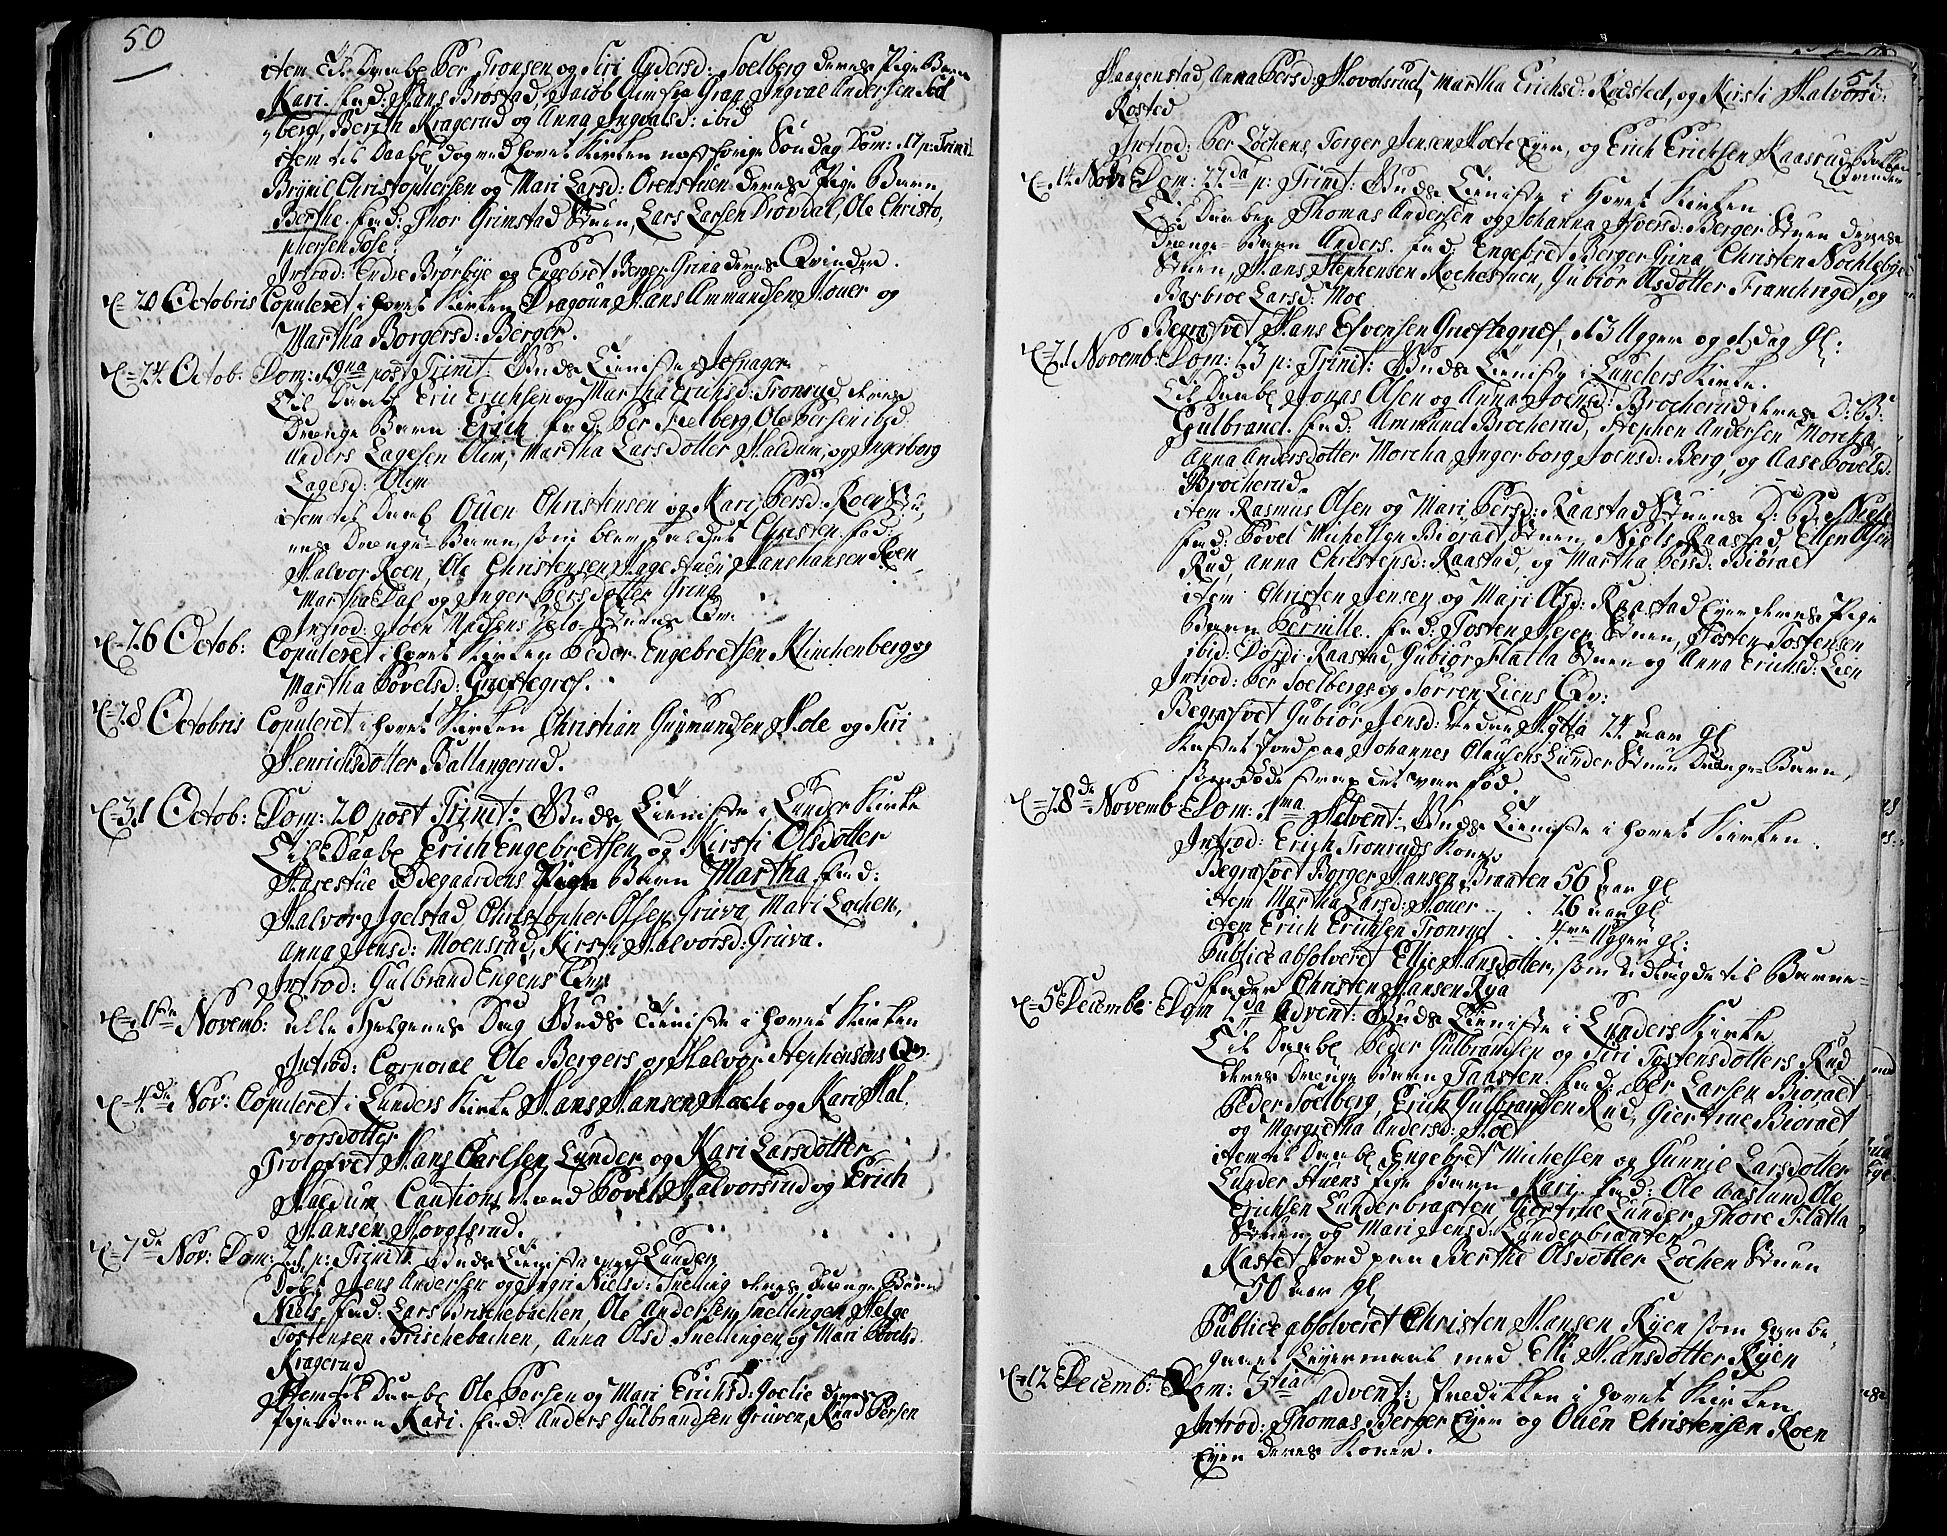 50
item til Daabe Per Tronsen og Siri Andersd: Soelberg deres Pige Barn
Kari. fad: Hans Brostad, Jacob Olim fra Gran, Ingval Andersen Soel
berg, Berith Kragerud og Anna Ingvalsd: ibid
item til Daabe dog ved hovet Kirken næst forige Søndag Dom: 17 p: Trinit
Brynil Christophersen og Mari Larsd: Orenstuen deres Pige Barn
Berthe. fad: Thor Grimstad Stuen, Lars Larsen Drövdal, Ole Christo,
phersen Tose.
Introd: Endre Brörbye og Engebret Berger Grina deres Qvinder.
d=20 Octobris Copuleret i hovet Kirken Dragoun Hans Ammundsen Houer og
Martha Borgersd: Berger.
d=24 Octob: Dom: 19na post Trinit. Guds Tieniste Jefnager
Til Daabe Eric Erichsen og Martha Erichsd: Tronrud deres
Drenge Barn Erich fad: Per Soelberg, Ole Persen ibid.
Anders Lagesen Olim, Martha Larsdotter Haldum, og Ingerborg
Lagesd: Olim
item til Daab Ouen Christensen og Kari Persd: Roen Stu,
ens Drenge-Barn som blev kaldet Christen. fad:
Halvor Roen, Ole Christensen Hagestuen, Hans hansen Roen,
Martha Dal og Inger Persdotter Grina
Introd: Joen Madsens Stuens Qv:
d=26 Octob: Copuleret i hovet Kirken Peder Engebretsen Klinchenberg og
Martha Povelsd: Greftegref.
d=28 Octobris Copuleret i hovet Kirken Christian Gugmundsen Hole og Siri
Henrichsdotter Ballangerud.
d=31 Octob: Dom: 20 post Trinit: Guds Tieniste i Lunder Kirke
Til Daabe Erich Engebretsen og Kirsti Olsdotter
Harestue Ödegaardens Pige Barn Martha fad:
Halvor Igelstad, Christopher Olsen Gruva, Mari Lochen,
Anna Jensd: Moensrud, Kirsti Halvorsd: Gruva.
Introd: Gulbrand Engens Qv:
d=1ste Novemb: Alle Helgenes Dag Guds Tieniste i hovet Kirken
Introd: Corporal Ole Bergers og Halvor Stephensens Qv.
d=4de Nov: Copuleret i Lunders Kirke Hans Hansen Hoele og Kari Hal,
vorsdotter
Trolofvet Hans Carlsen Lunder og Kari Larsdotter
Haldum Cautions Mænd Povel Halvorsrud og Erich
Hansen Hovolsrud.
d=7de Nov: Dom: 21 p: Trinit: Guds Tieniste ved Lunder
Döbt Jens Andersen og Ingri Nielsd: Snelling deres Drenge Barn
Niels. fad: Lars Brischebachen, Ole Andersen Snellingen, Helge
Tostensen Brischebachen, Anna Olsd Snellingen, og Mari Povelsd.
Kragerud
Item til Daabe Ole Persen og Mari Erichsd: Goelie deres
Pige Barn Kari. fad: Anders Gulbrandsen Gruven, Knud Persen
51.
Haagenstad, Anna Persd: Hovolsrud, Martha Erichsd: Rodsted, og Kirsti Halvorsd:
Rosted
Introd: Per Lochens, Torger Jensen Hoele Eyen, og Erich Erichsen Kaasrud
Qvinder
d=14 Nov: Dom: 22da p: Trinit: Guds Tieniste i hovet Kirken
Til Daaben Thomas Andersen og Johanna Ifversd: Berger Stuen deres
Drenge-Barn Anders. fad: Engebret Berger Grina, Christen Nochleby
Stuen, Hans Stephensen Rochestuen, Gubiör Olsdotter Franchriget, og
Basbroe Larsd: Moe
Begrafvet Hans Elvensen Greftegref, 13 Uger og 1 dag gl:
d=21 Novemb: Dom: 23 p: Trinit: Guds Tieniste i Lunders Kirke.
Til Daabe Jonas Olsen og Anna Joensd: Brocherud deres D: B:
Gulbrand. fad: Ammund Brocherud, Stephen Andersen Morcha,
Anna Andersdotter Morcha, Ingerborg Joensd: Berg, og Aase Povelsd:
Brocherud.
item Rasmus Olsen og Mari Persd: Raastad Stuens D: B: Niels
fad: Povel Michelsen Bioraet Stuen, Niels Raastad, Ellen Olsen
Rud, Anna Christensd: Raastad, og Martha Persd: Bioraet
item Christen Jensen og Mari Olsd: Raastad Eyer deres Pige
Barn Pernille. fad: Tosten Heyer Stuen, Tosten Tostensen
ibid: Dordi Raastad, Gubiör Flatta Stuen og Anna Erichsd: Lien
Introd: Per Soelbergs og Sörren Liens Qv:
Begrafvet Gubiör Jensd: Vedar Hytta 24 Aar gl
Kastet Jord paa Johannes Olausens Lunder Stuen Drenge-Barn,
som döde strax det var föd.
d=28de Novemb: Dom: 1ma Advent: Guds Tieniste i hovet Kirken.
Introd: Erich Tronruds Kone
Begrafvet Borger Hansen Braaten 56 Aar gl
item Martha Larsd: Houer . . 26 Aar gl
item Erich Erichsen Tronrud . . 4re Uger gl:
Publice absolveret Ellie Hansdotter, som udlagde til Barne-
fader Christen Hansen Rya
d=5 Decembr: Dom 2da Advent: Guds Tieniste i Lunders Kirke
Til Daabe Peder Gulbrandsen og Siri Tostensdotters Rud
deres Drenge Barn Taasten. fad: Per Larsen Bioraet
Peder Soelberg, Erich Gulbrandsen Rud, Giertrue Bioraet
og Margretha Andersd: Hoel
item til Daabe Engebret Michelsen og Gunnie Larsdotter
Lunder Stuens Pige Barn Kari. fad: Ole Aaslund, Ole
Erichsen Lunderbraaten, Giertrue Lunder, Thore Flatta
Stuen, og Mari Jensd: Lunderbraaten
Kastet Jord paa Berthe Olsdotter Lochen Stuen
50 Aar gl
Publice absolveret Christen Hansen Ryen som har be-
gaaet Leyermaal med Elli Hansdotter Ryen
d=12 Decemb: Dom: 3tia Advent: Prædiken i hovet Kirken
Introd: Thomas Berger Eyer og Ouen Christensen Roen
Eyen deres Koner.